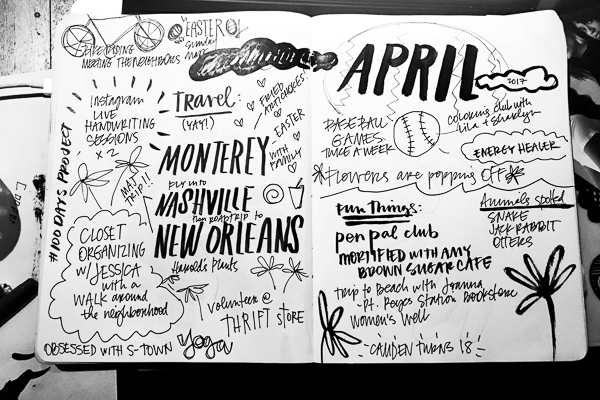 BIKE RIDING
MEETING THE NEIGHBORS
EASTER
Sunday
Instagram
LIVE
HANDWRITING
SESSIONS
x 2
Travel
(YAY!)
FRIED
ARTICHOKES!
EASTER
WITH
FAMILY
#100 DAYS PROJECT
MAJ
TRIP!!
MONTEREY
fly into
NASHVILLE
then ROADTRIP to
NEW ORLEANS
Harold's Plants
CLOSET
ORGANIZING
w/ JESSICA
with a
WALK around
the neighborhood
volunteer @
THRIFT STORE
OBSESSED WITH S-TOWN
yoga
APRIL
2017
BASEBALL
GAMES
TWICE A WEEK
colouring club with
Lila +
ENERGY HEALER
Flowers are popping OFF
Fun Things:
pen pal club
MORTIFIED WITH AMY
BROWN SUGAR CAFE
trip to Beach with Joanna
-Pt. Reyes Station Bookstore
Women's Well
-CAMDEN TURNS 18-
Animals spotted
SNAKE
JACK RABBIT
OTTERS